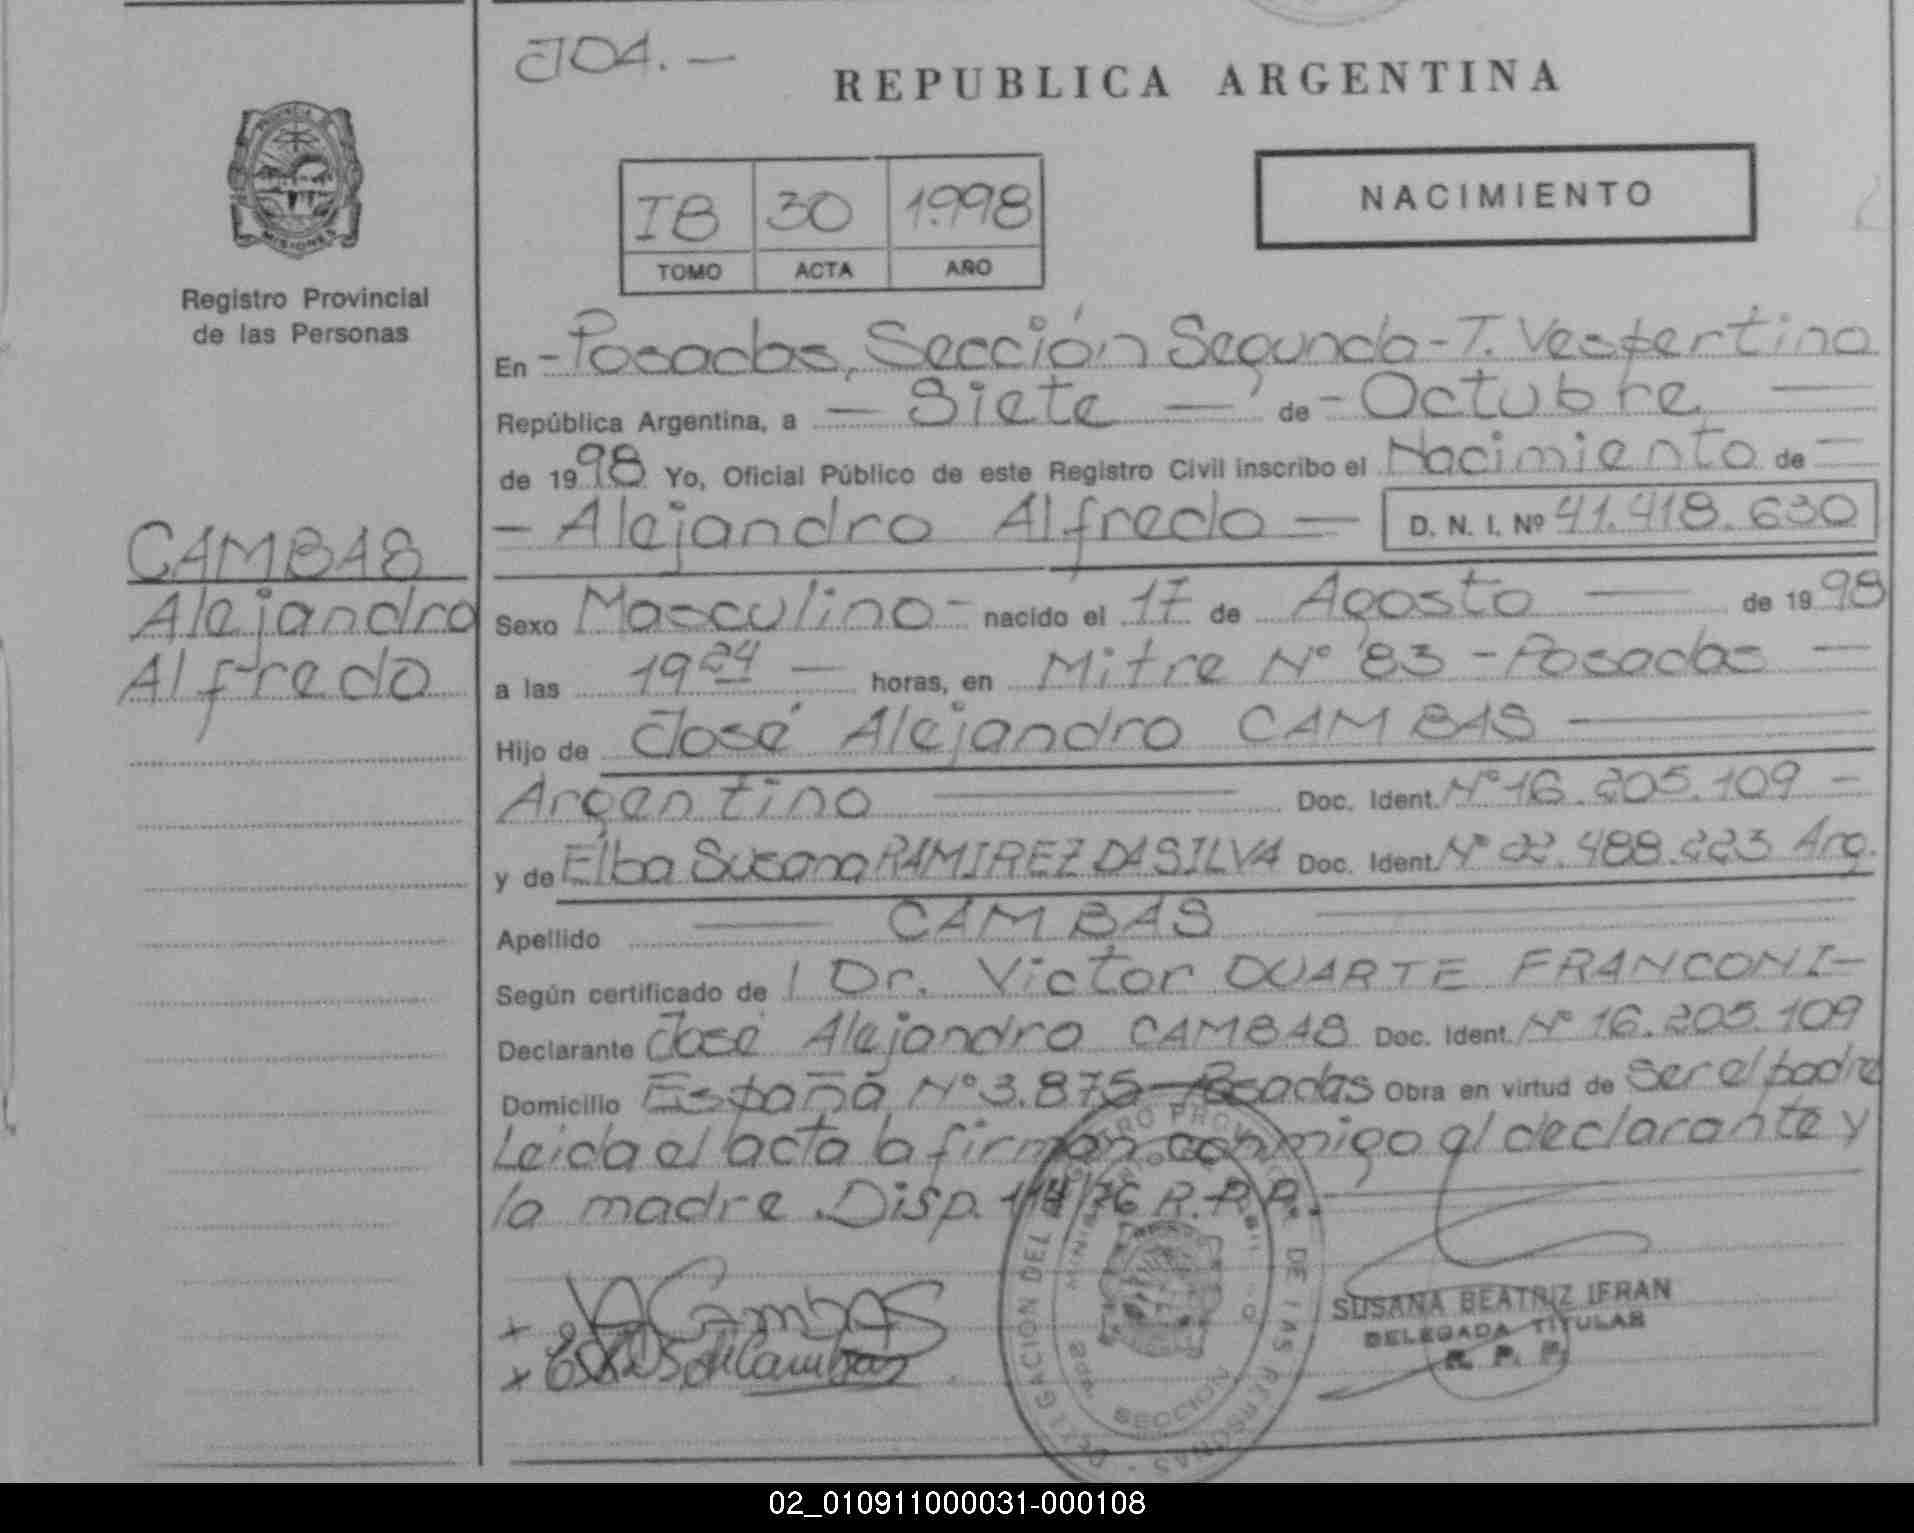 JO4.-
REPUBLICA ARGENTINA
PROVINCIA DE
MISIONES
Registro Provincial
de las Personas
IB 30 1.998
TOMO ACTA AÑO
NACIMIENTO
En - Posadas, Sección Segunda - T. Vespertino
República Argentina, a — Siete — de - Octubre —
de 1998 Yo, Oficial Público de este Registro Civil inscribo el Nacimiento de —
- Alejandro Alfredo = D. N. I. Nº 41.418.630
CAMBAS
Alejandro
Alfredo
Sexo Masculino - nacido el 17 de Agosto — de 1998
a las 19 24 — horas, en Mitre Nº 83 - Posadas —
Hijo de José Alejandro CAMBAS
Argentino — Doc. Ident. Nº 16.205.109 -
y de Elba Susana RAMIREZ DA SILVA Doc. Ident. Nº 22.488.223 Arg.
Apellido — CAMBAS
Según certificado de Dr. Victor DUARTE FRANCONI -
Declarante José Alejandro CAMBAS Doc. Ident. Nº 16.205.109
Domicilio España Nº 3.875 - Posadas Obra en virtud de ser el padre
Leida el acta la firman conmigo el declarante y
la madre. Disp. 114/76 R.P.P.
DELEGACION DEL REGISTRO PROVINCIAL DE LAS PERSONAS
SECCION
CambAS
SUSANA BEATRIZ IFRAN
DELEGADA TITULAR
R. P. P.
02_010911000031-000108